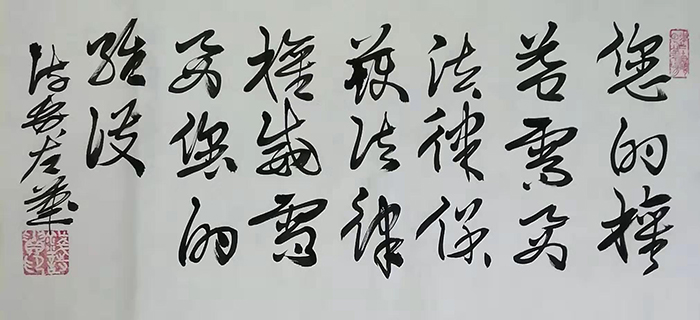 您的權
益需要
法律保
護法律
權威需
要您的
維護